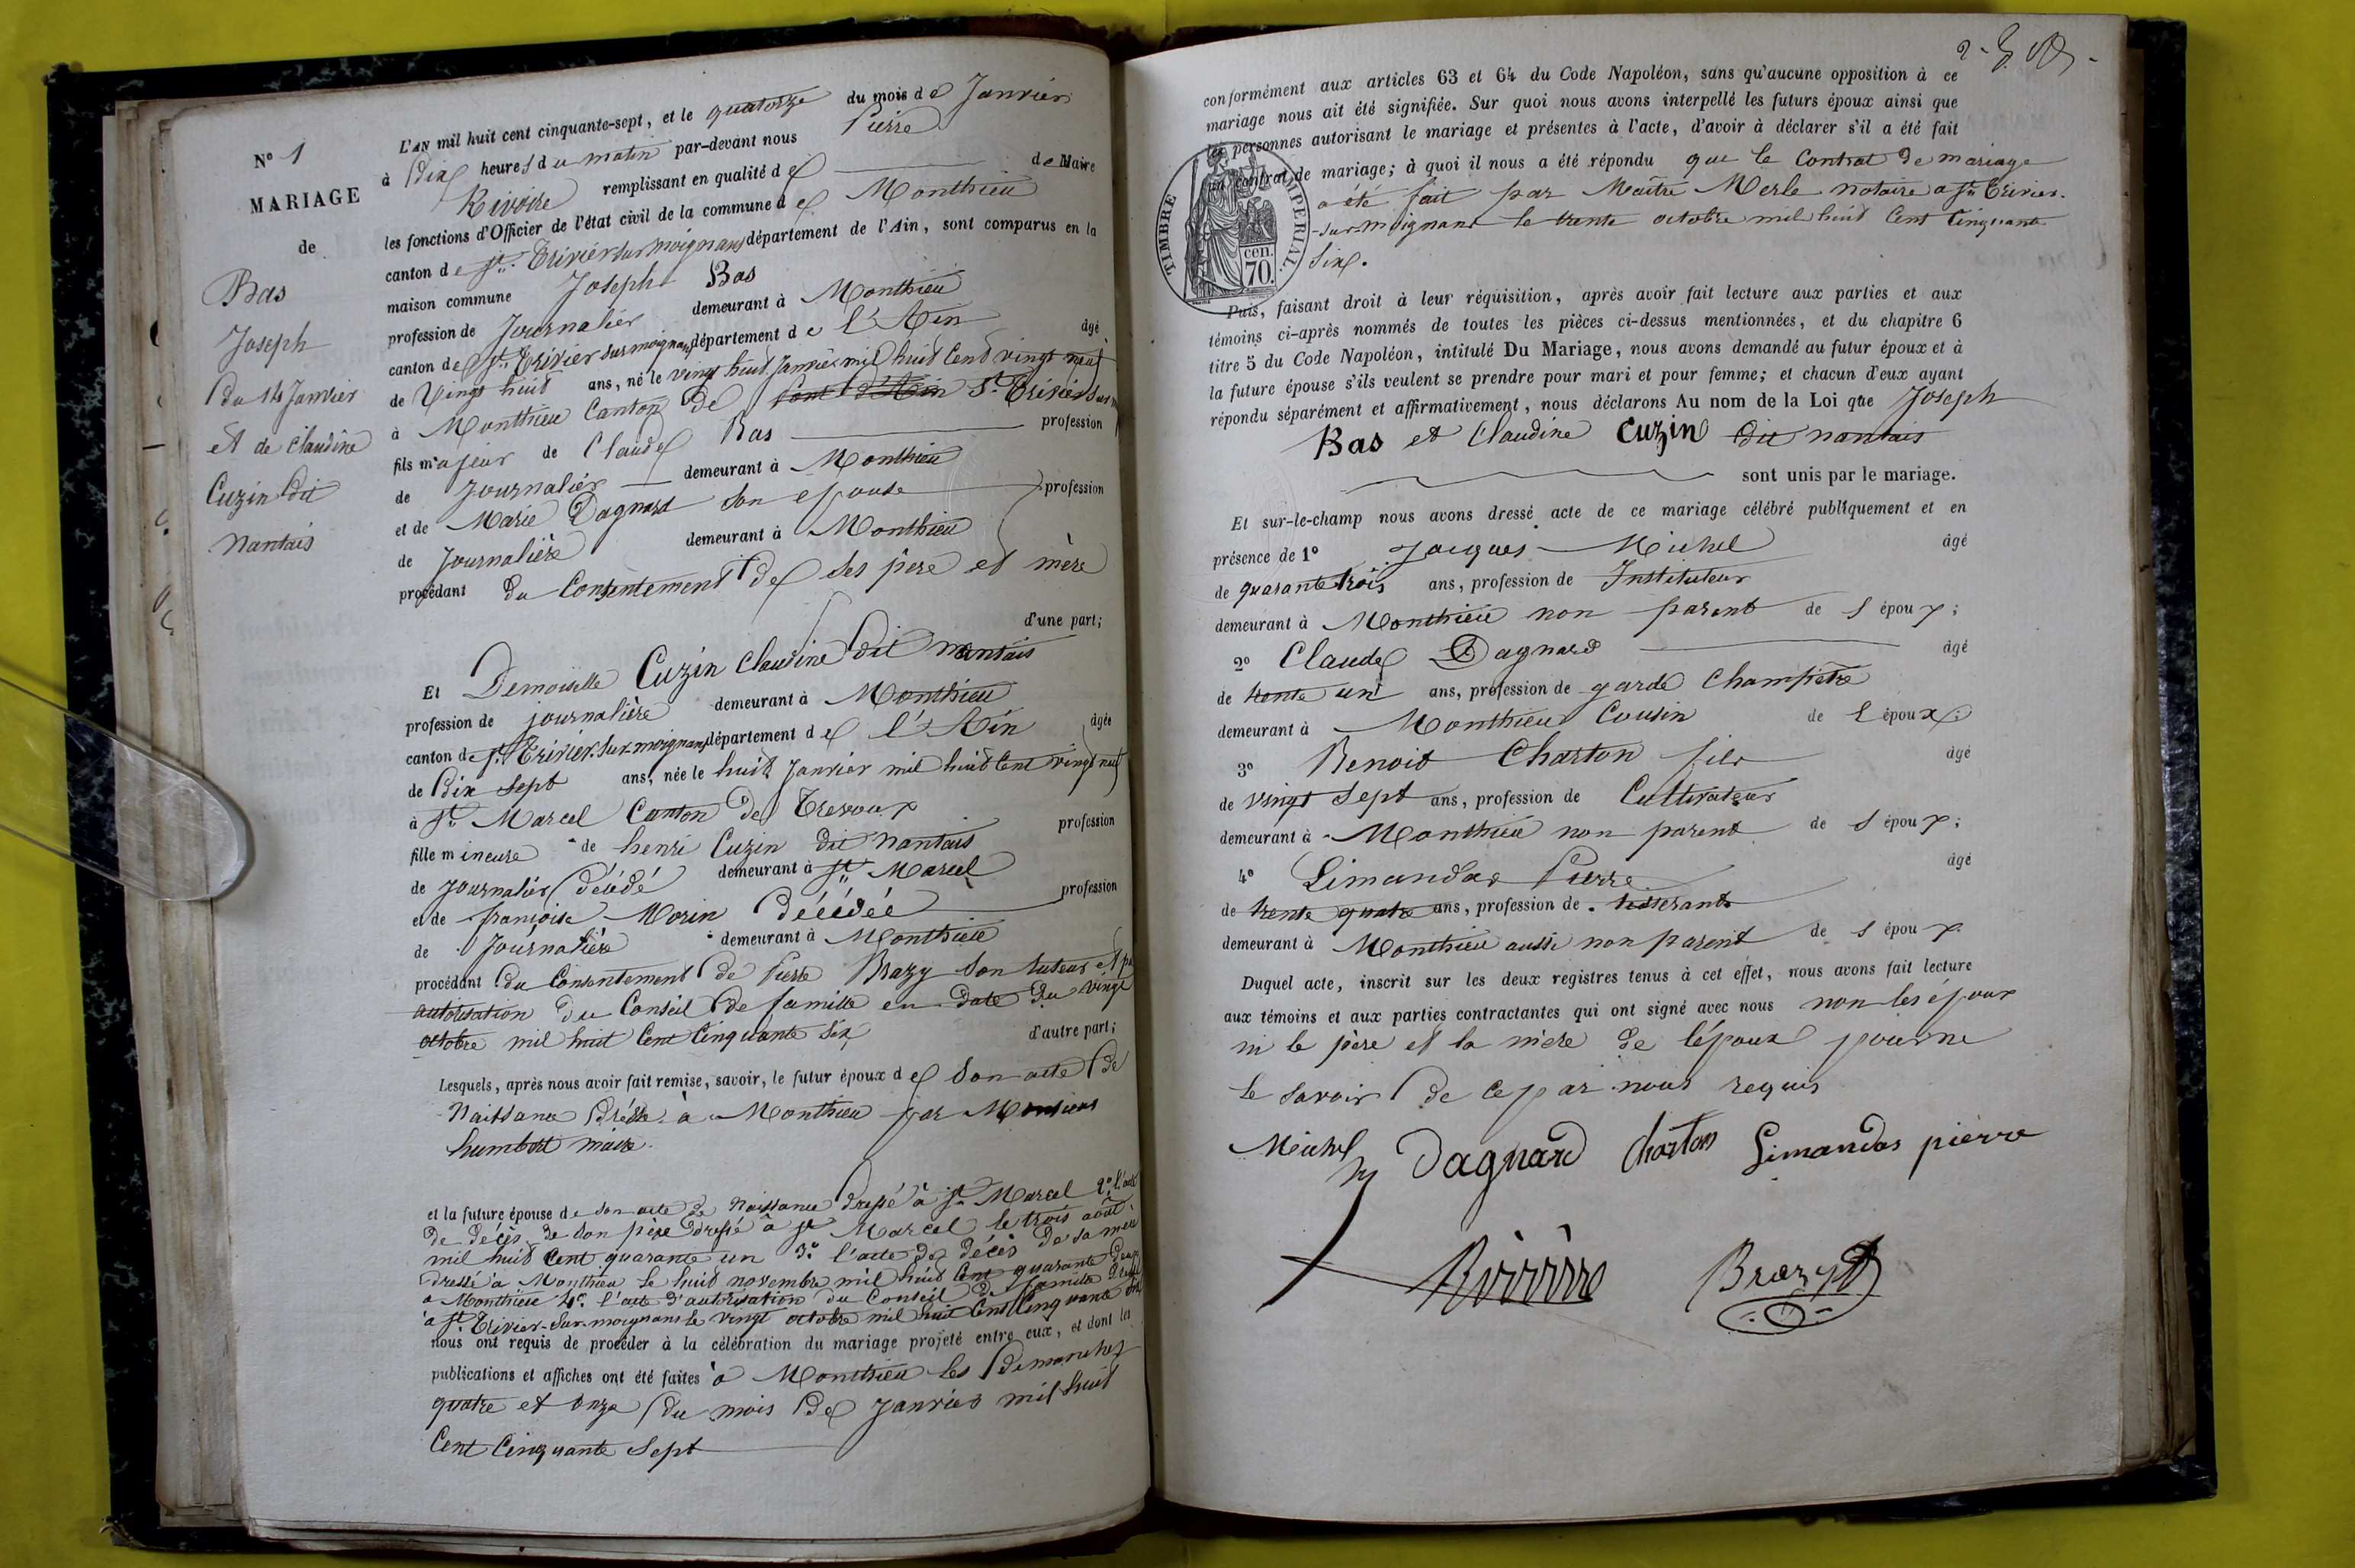 N° 1
MARIAGE
de
Bas
Joseph
du 14 Janvier
et de Claudine
Cuzin dit
Nantais
L'AN mil huit cent cinquante-sept, et le quatorze du mois de Janvier
à dix heures du matin par-devant nous Pierre
Rivoire remplissant en qualité de Maire
les fonctions d'Officier de l'état civil de la commune de Monthieu
canton de St Trivier sur moignans département de l'Ain, sont comparus en la
maison commune Joseph Bas
profession de Journalier demeurant à Monthieu
canton de St Trivier sur moignans département de l'Ain âgé
de Vingt huit ans, né le vingt huit Janvier mil huit Cent vingt neuf
à Monthieu Canton de St Trivier sur
fils majeur de Claude Bas profession
de Journalier demeurant à Monthieu
et de Marie Dagnard son epouse profession
de Journalière demeurant à Monthieu
procédant du Consentement de ses père et mère
d'une part;
Et Demoiselle Cuzin Claudine dit nantais
profession de journalière demeurant à Monthieu
canton de St Trivier sur moignans département de l'Ain âgée
de dix sept ans, née le huit Janvier mil huit Cent vingt neuf
à St Marcel Canton de Trevoux
fille mineure de henri Cuzin dit nantais profession
de Journalier décédé demeurant à St Marcel
et de françoise Morin décédée profession
de Journalière demeurant à Monthieu
procédant du Consentement de Pierre Brazy son tuteur et
autorisation du Conseil de famille en date du vingt
octobre mil huit Cent Cinquante six d'autre part;
Lesquels, après nous avoir fait remise, savoir, le futur époux de son acte de
Naissance dressé à Monthieu par Monsieur
humbert maire.
et la future épouse de son acte de Naissance dressé à St Marcel 2° l'acte
de décès de son père dressé à St Marcel le trois août
mil huit Cent quarante un 3° l'acte de décès de sa mère
dressé à Monthieu le huit novembre mil huit Cent quarante deux
à Monthieu 4° l'acte d'autorisation du Conseil de famille
à St Trivier-sur-moignans le vingt octobre mil huit Cent Cinquante six
nous ont requis de procéder à la célébration du mariage projeté entre eux, et dont la
publications et affiches ont été faites à Monthieu les dimanches
quatre et onze du mois de Janvier mil huit
Cent Cinquante sept
conformément aux articles 63 et 64 du Code Napoléon, sans qu'aucune opposition à ce
mariage nous ait été signifiée. Sur quoi nous avons interpellé les futurs époux ainsi que
les personnes autorisant le mariage et présentes à l'acte, d'avoir à déclarer s'il a été fait
un contrat de mariage; à quoi il nous a été répondu que le Contrat de mariage
a été fait par Maître Merle notaire a St Trivier-
sur moignans le trente octobre mil huit Cent Cinquante
Six.
TIMBRE IMPERIAL.
cen.
70.
Puis, faisant droit à leur réquisition, après avoir fait lecture aux parties et aux
témoins ci-après nommés de toutes les pièces ci-dessus mentionnées, et du chapitre 6
titre 5 du Code Napoléon, intitulé Du Mariage, nous avons demandé au futur époux et à
la future épouse s'ils veulent se prendre pour mari et pour femme; et chacun d'eux ayant
répondu séparément et affirmativement, nous déclarons Au nom de la Loi que Joseph
Bas et Claudine Cuzin dit nantais
sont unis par le mariage.
Et sur-le-champ nous avons dressé acte de ce mariage célébré publiquement et en
présence de 1° Jacques Michel âgé
de quarante trois ans, profession de Instituteur
demeurant à Monthieu non parent de s époux;
2° Claude Dagnard âgé
de trente un ans, profession de garde Champêtre
demeurant à Monthieu Cousin de l époux;
3° Benoit Charton fils âgé
de vingt sept ans, profession de Cultivateur
demeurant à Monthieu non parent de s époux;
4° Limandas Pierre âgé
de trente quatre ans, profession de tisserand
demeurant à Monthieu aussi non parent de s époux
Duquel acte, inscrit sur les deux registres tenus à cet effet, nous avons fait lecture
aux témoins et aux parties contractantes qui ont signé avec nous non les époux
ni le père et la mère de l'époux pour ne
le savoir de ce par nous requis
Michel Dagnard Charton Limandas pierre
Rivoire Brazy